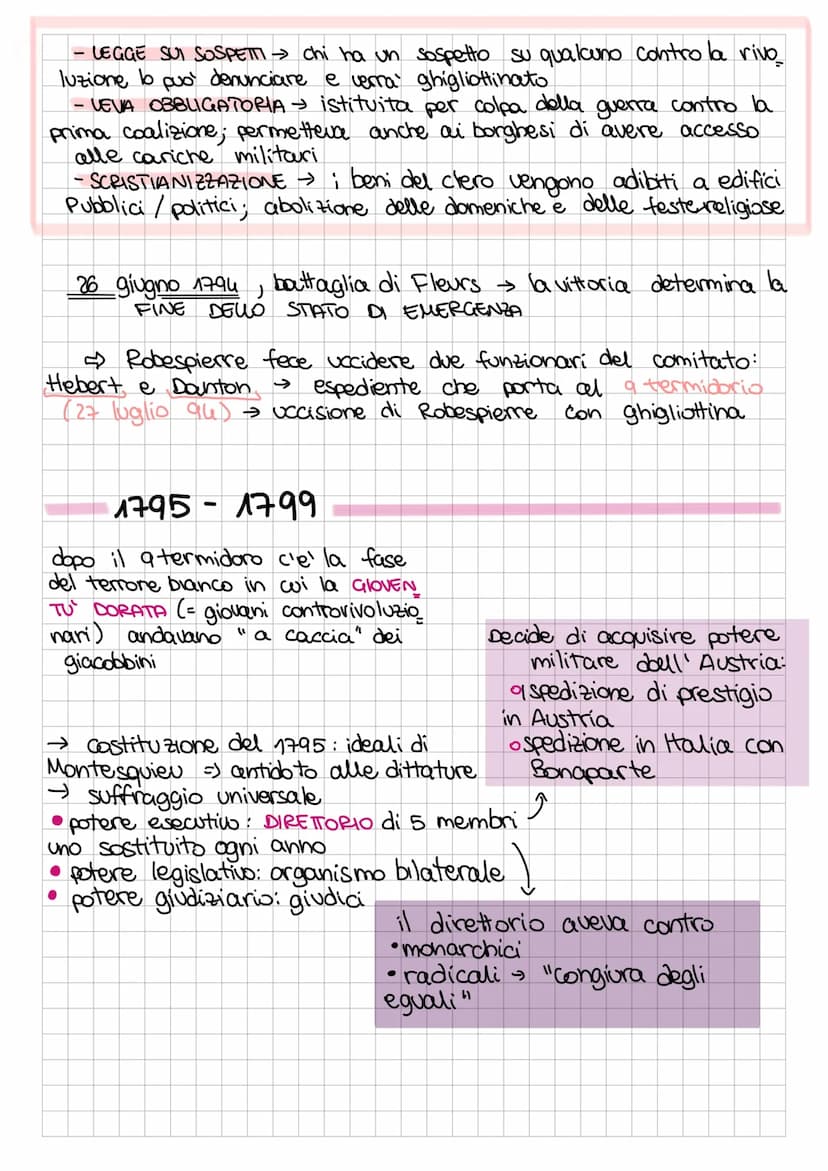 - LEGGE SUI SOSPETTI → chi ha un sospetto su qualcuno contro la rivo_
luzione lo può denunciare e verrà ghigliottinato
- LEVA OBBLIGATORIA → istituita per colpa della guerra contro la
prima coalizione; permetteva anche ai borghesi di avere accesso
alle cariche militari
- SCRISTIANIZZAZIONE → i beni del clero vengono adibiti a edifici
Pubblici / politici; abolizione delle domeniche e delle feste religiose
26 giugno 1794, battaglia di Fleurs → la vittoria determina la
FINE DELLO STATO DI EMERGENZA
⇨ Robespierre fece uccidere due funzionari del comitato:
Hebert e Danton → espediente che porta al 9 termidorio
(27 luglio 94) → uccisione di Robespierre con ghigliottina
1795 - 1799
dopo il 9 termidoro c'è la fase
del terrore bianco in cui la GIOVEN_
TU' DORATA (= giovani controrivoluzio_
nari) andavano "a caccia" dei
giacobbini
→ costituzione del 1795: ideali di
Montesquieu => antidoto alle dittature
→ suffraggio universale
• potere esecutivo: DIRETTORIO di 5 membri
uno sostituito ogni anno
• potere legislativo: organismo bilaterale
• potere giudiziario: giudici
Decide di acquisire potere
militare dall'Austria:
spedizione di prestigio
in Austria
spedizione in Italia con
Bonaparte
il direttorio aveva contro
• monarchici
• radicali → "congiura degli
eguali"